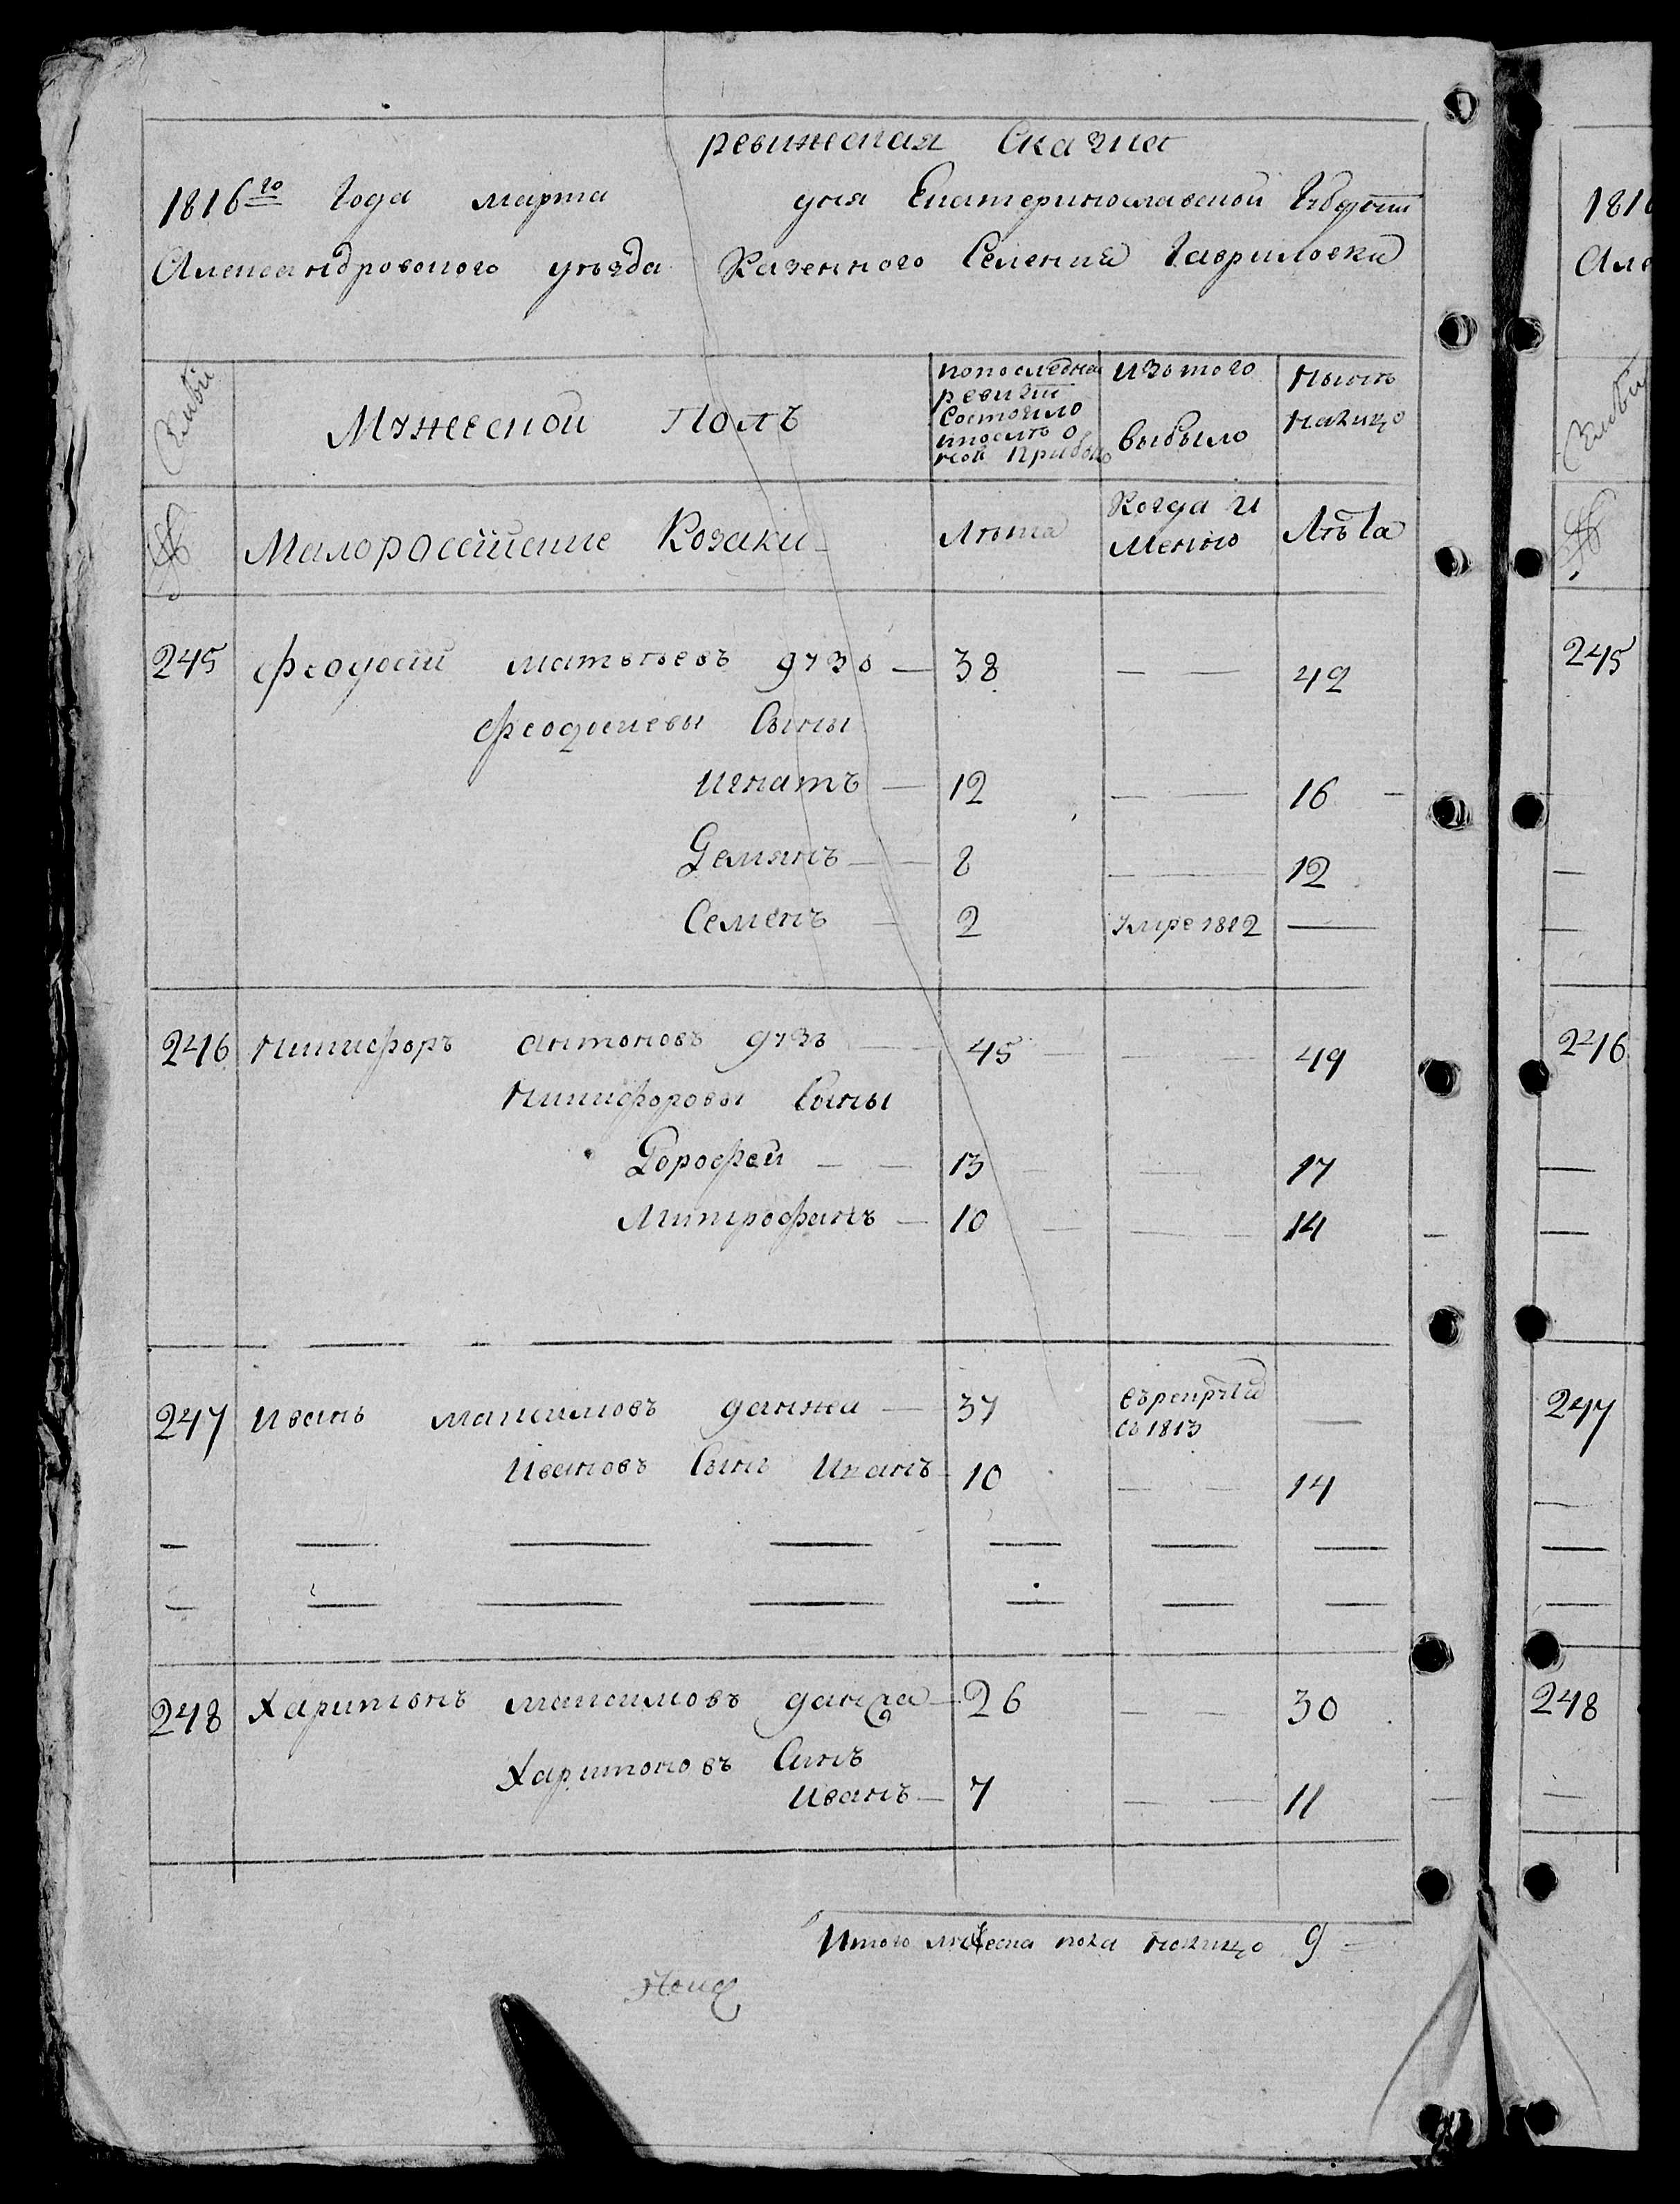 ревижская Сказка
1816го Года марта дня Екатеринославской Губернїи
Александровского уезда Казенного Селения Гавриловки
Мужеской Полъ
попоследней ревизїи Состояло ипослѣ оной прибыло
Изътого выбыло
Нынѣ налицо
Семьи
№
Малоросейские Козаки
Лѣта
Когда И Менно
Лѣта
245 Феодосїй матвѣевъ дузь — 38 — — 42
Феодосиевы Сыны
Игнатъ — 12 — — 16
Демянъ — 8 — 12
Семенъ — 2 Умре 1812 —
246 Никифоръ антоновъ дузь 45 — 49
Никифоровы Сыны
Дорофей — — 13 — 17
Митрофанъ — 10 — — 14
247 Иванъ максимовъ данжа — 37 въ рекрутахъ Съ 1813 —
Ивановъ Сынъ Иванъ 10 — — 14
248 Харитонъ максимовъ данжа — 26 — — 30
Харитоновъ Синъ
Иванъ — 7 — — 11
Итого мужеска пола налицо 9
1816
Але
Семьи
№
245
246
247
248